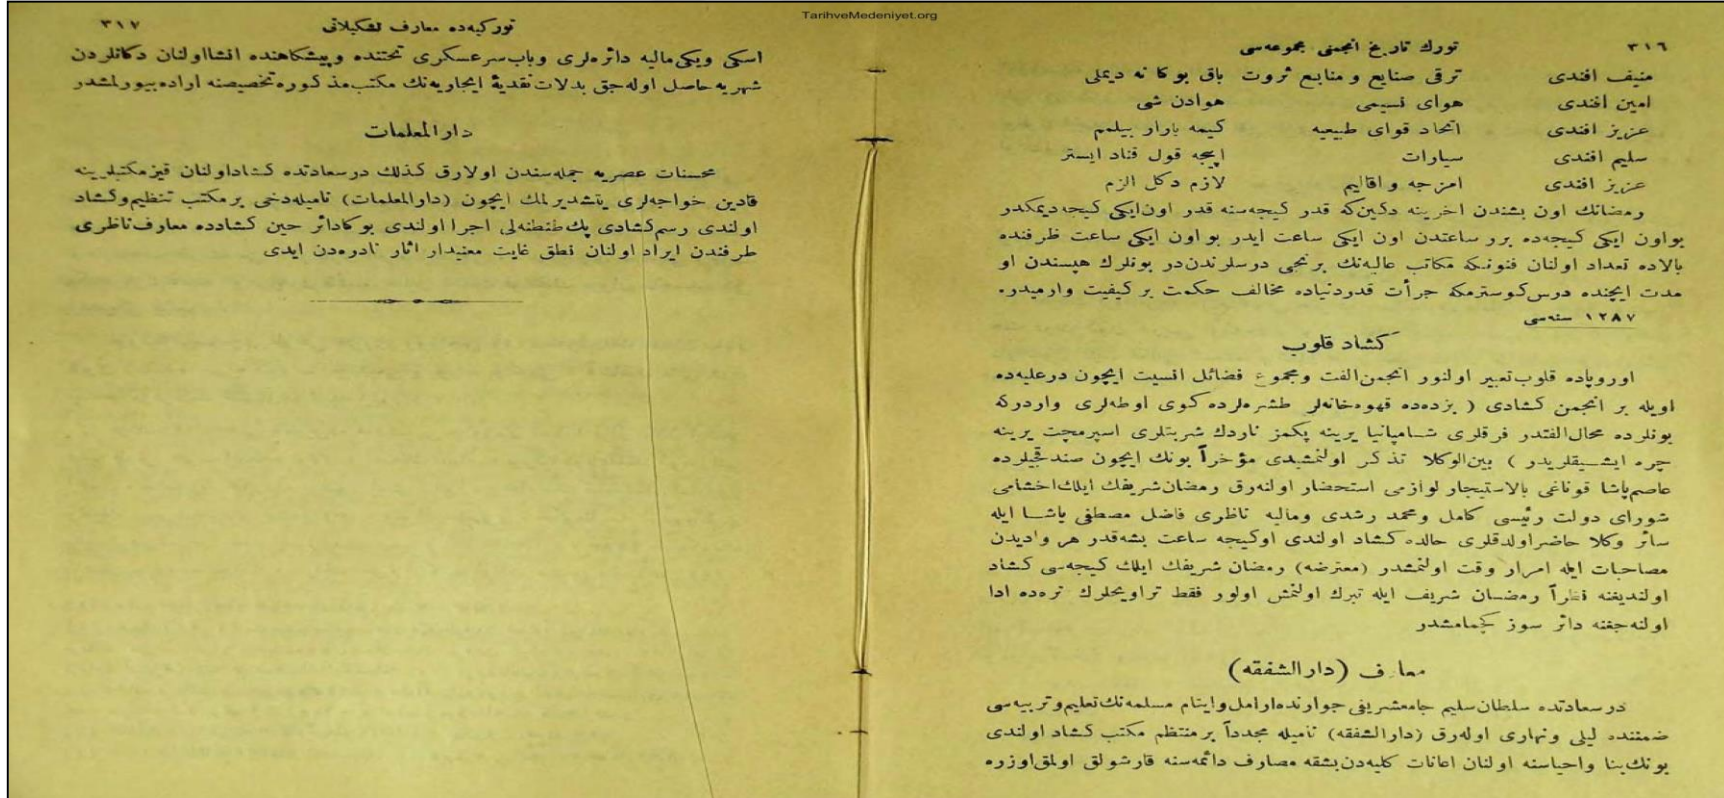 TarihveMedeniyet.org
٣١٦ تورك تاريخ انجمنى مجموعه‌سى
منيف افندى ترقى صنايع و منابع ثروت باق بوكا نه ديملى
امين افندى هواى نسيمى هوادن شى
عزيز افندى اتحاد قواى طبيعيه كيمه يارار بيلمم
سليم افندى سيارات ايجه قول قناد ايستر
عزيز افندى امزجه و اقاليم لازم دكل الزم
رمضانك اون بشندن اخرينه دكين كه قدر كيجه‌سنه قدر اون ايكى كيجه ديمكدر
بو اون ايكى كيجه‌ده برر ساعتدن اون ايكى ساعت ايدر بو اون ايكى ساعت ظرفنده
بالاده تعداد اولنان فنونكه مكاتب عاليه‌نك برنجى درسلرندن‌در بونلرك هپسندن او
مدت ايچنده درس كوسترمكه جرأت قدردنياده مخالف حكمت بر كيفيت وارميدر.
١٢٨٧ سنه‌سى
كشاد قلوب
اوروپاده قلوب تعبير اولنور انجمن الفت ومجموع فضائل انسيت ايچون درعليه‌ده
اويله بر انجمن كشادى ( بزده‌ده قهوه‌خانه‌لر طشره‌لرده كوى اوطه‌لرى واردركه
بونلرده محال الفتدر فرقلرى شامپانيا يرينه پكمز ناردك شربتلرى اسپرمچت يرينه
چره ايشيقلريدر ) بين الوكلا تذكر اولنمشيدى مؤخراً بونك ايچون صندقجيلرده
عاصم پاشا قوناغى بالاستيجار لوازمى استحضار اولنه‌رق رمضان شريفك ايلك اخشامى
شوراى دولت رئيسى كامل ومحمد رشدى وماليه ناظرى فاضل مصطفى پاشا ايله
سائر وكلا حاضر اولدقلرى حالده كشاد اولندى اوكيجه ساعت بشه قدر هر واديدن
مصاحبات ايله امرار وقت اولنمشدر (معترضه) رمضان شريفك ايلك كيجه‌سى كشاد
اولنديغنه نظراً رمضان شريف ايله تبرك اولنمش اولور فقط تراويحلرك نره‌ده ادا
اولنه‌جغنه دائر سوز كچمامشدر
معارف (دار الشفقه)
درسعادتده سلطان سليم جامعشريفى جوارنده ارامل وايتام مسلمه‌نك تعليم وتربيه‌سى
ضمننده ليلى ونهارى اوله‌رق (دار الشفقه) ناميله مجدداً بر منتظم مكتب كشاد اولندى
بونك بنا واحياسنه اولنان اعانات كليه‌دن بشقه مصارف دائمه‌سنه قارشولق اولمق اوزره
توركيه‌ده معارف تشكيلاتى ٣١٧
اسكى ويكى ماليه دائره‌لرى وباب سرعسكرى تحتنده وپيشكاهنده انشا اولنان دكانلردن
شهريه حاصل اوله‌جق بدلات نقديهٔ ايجاريه‌نك مكتب مذكوره تخصيصنه اراده بيورلمشدر
دار المعلمات
محسنات عصريه جمله‌سندن اولارق كذلك درسعادتده كشاد اولنان قيز مكتبلرينه
قادين خواجه‌لرى يتشديرلمك ايچون (دار المعلمات) ناميله دخى بر مكتب تنظيم وكشاد
اولندى رسم كشادى پك طنطنه‌لى اجرا اولندى بوكا دائر حين كشادده معارف ناظرى
طرفندن ايراد اولنان نطق غايت معنيدار اثار نادره‌دن ايدى